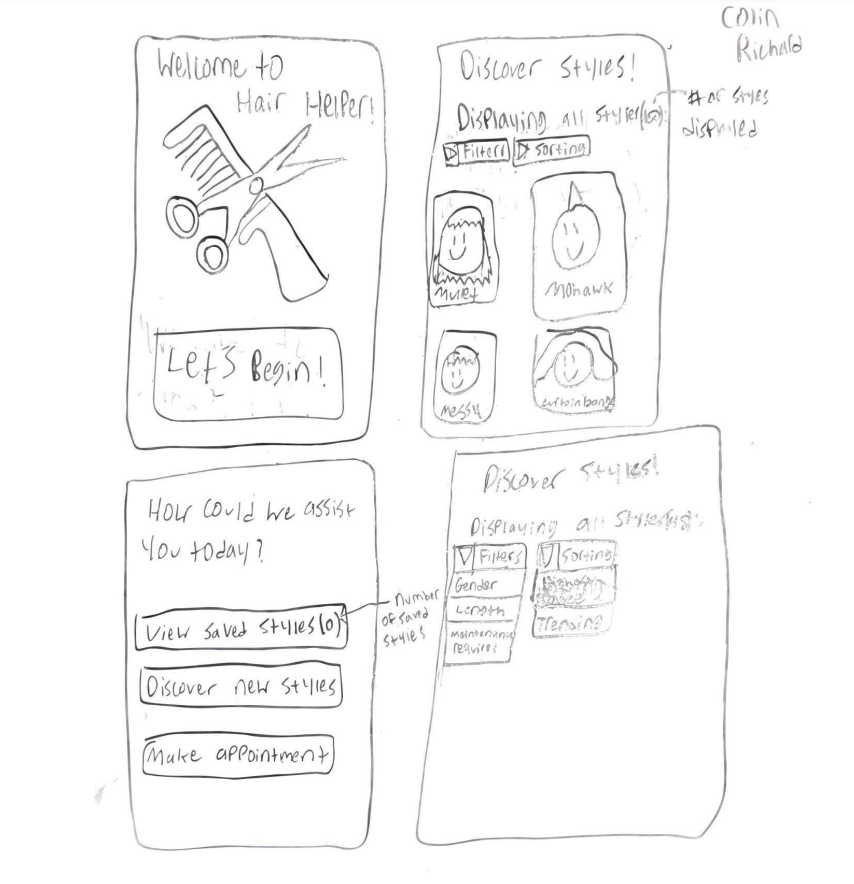 Colin
Richard
Welcome to
Hair Helper!
Let's Begin!
Discover Styles!
Displaying all Styles(10):
# of styles
displayed
Filters
Sorting
Mulet
Mohawk
Messy
curtain bangs
How could we assist
You today?
View Saved Styles(0)
Number
of saved
styles
Discover new styles
Make appointment
Discover Styles!
Displaying all Styles
Filters
Sorting
Gender
Length
Maintenance
required
Trending